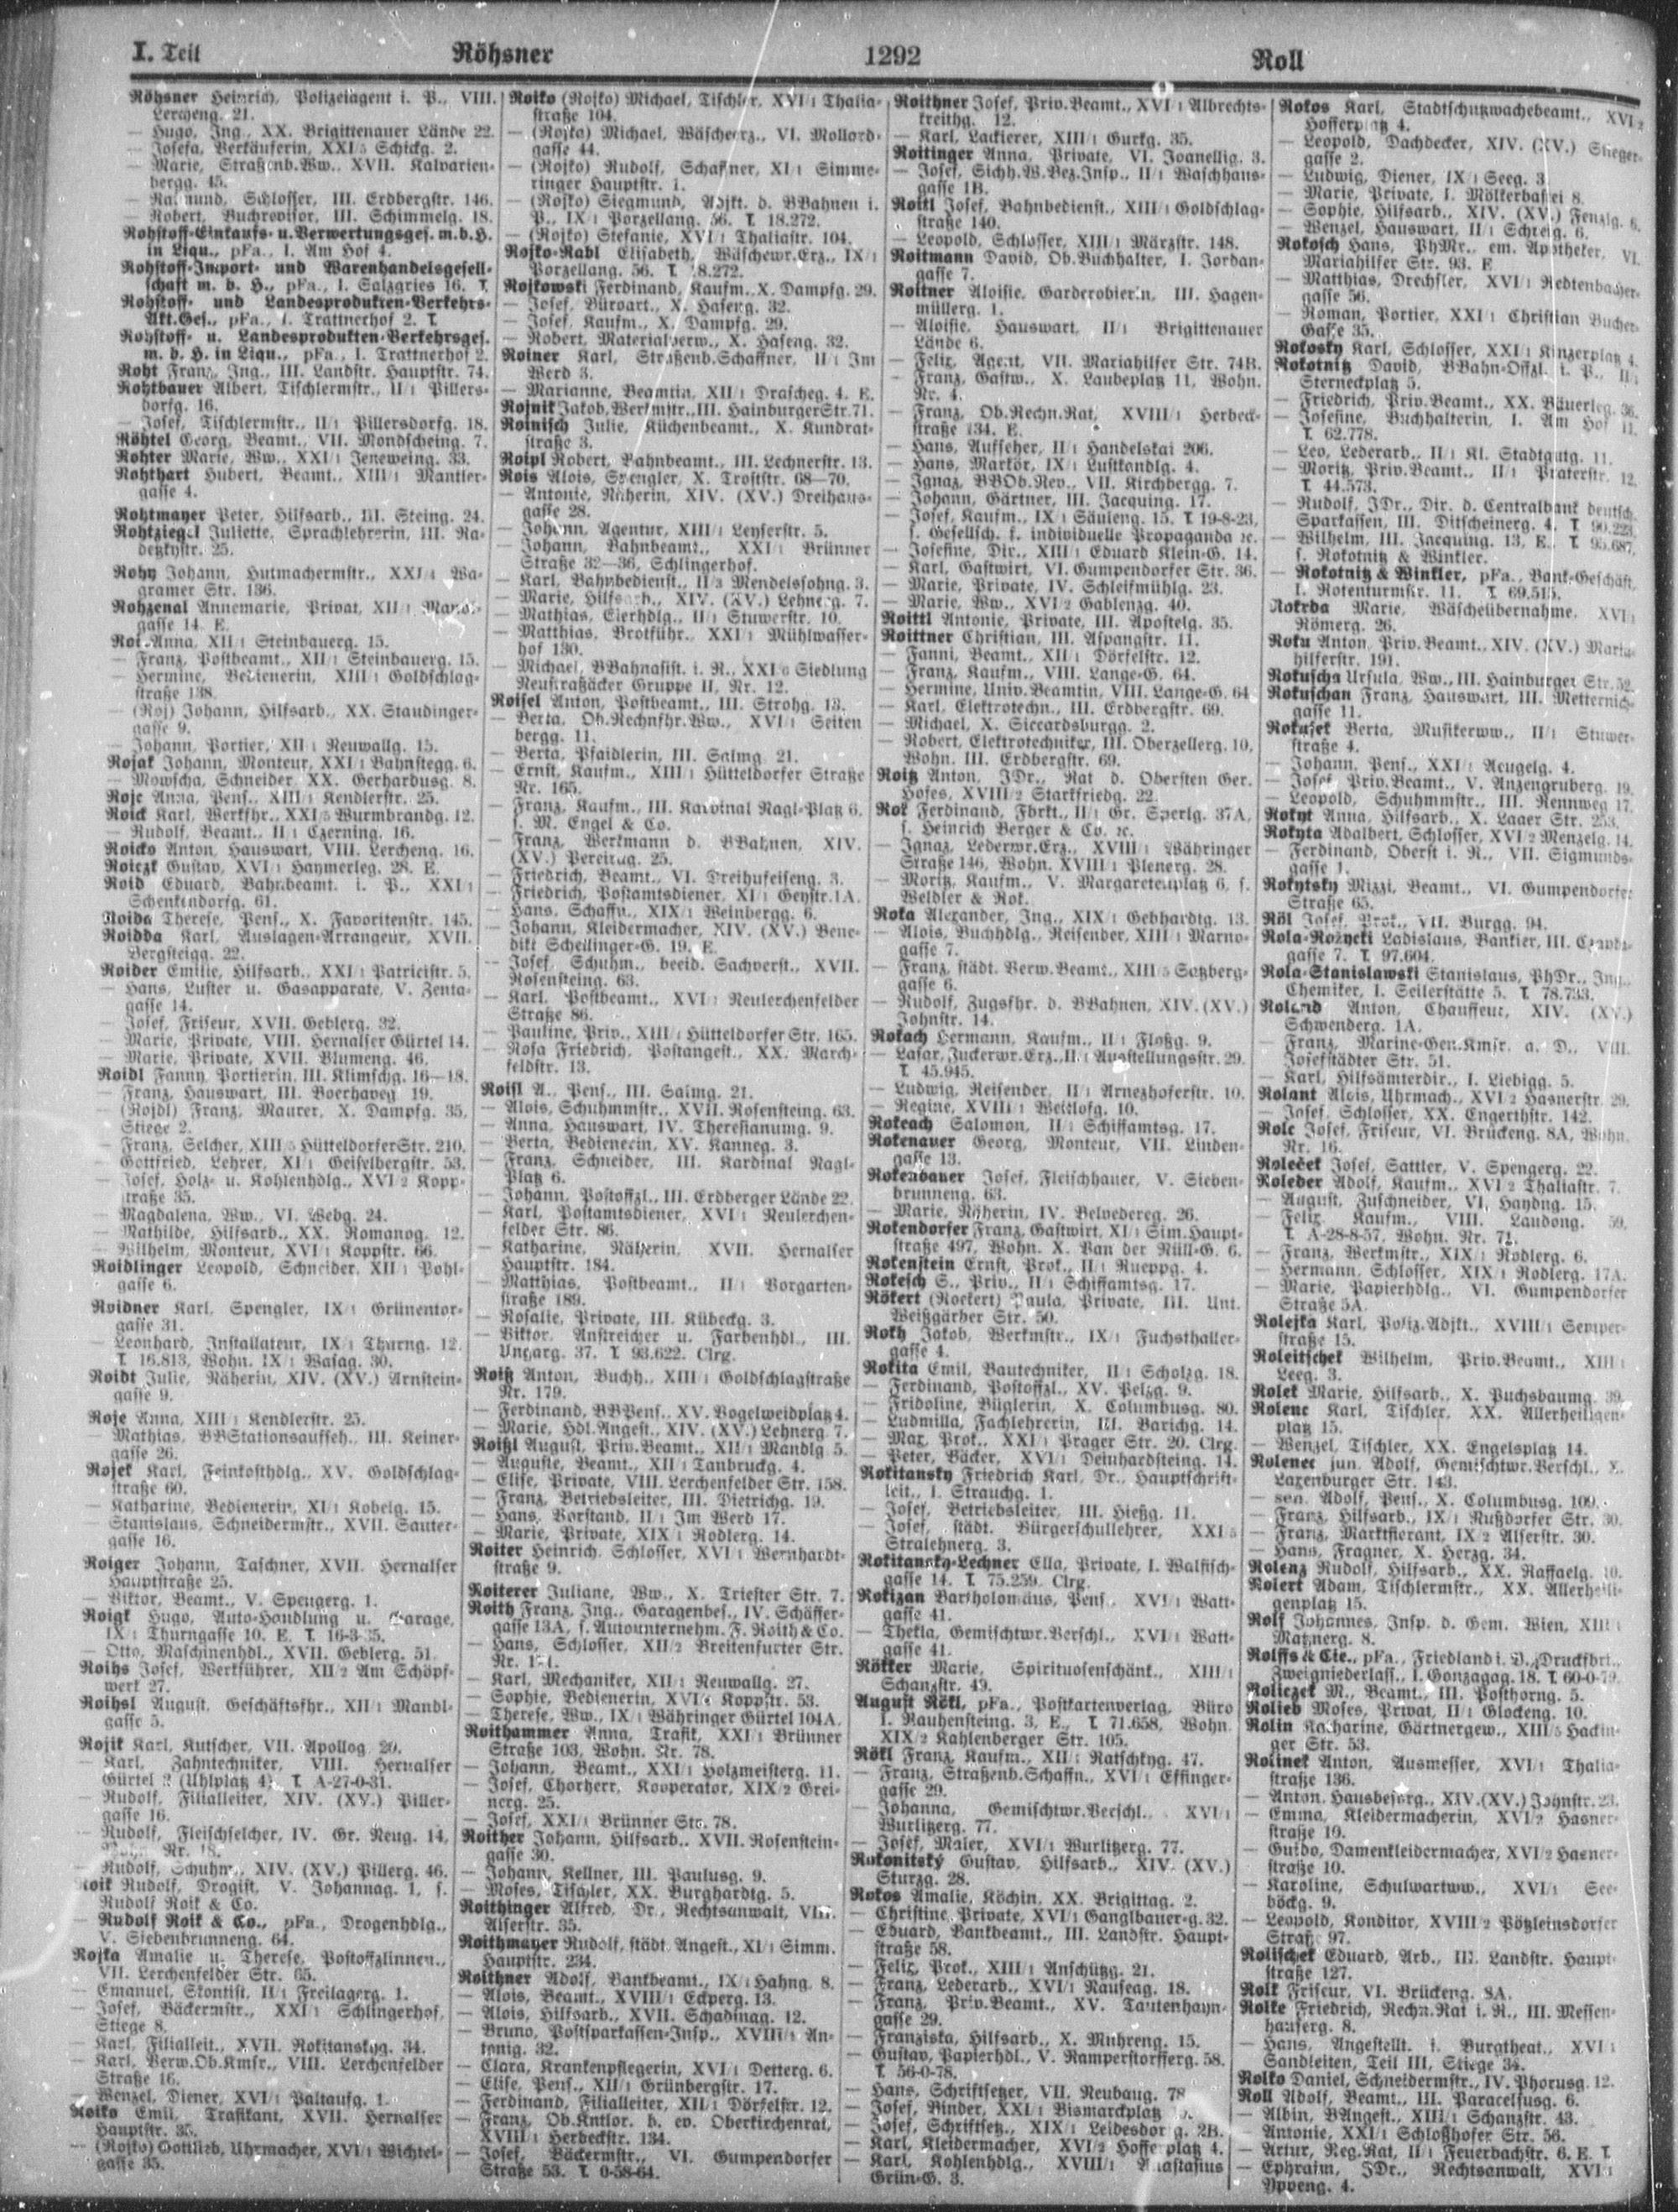 I. Teil Röhsner 1292 Roll
Röhsner Heinrich, Polizeiagent i. P., VIII.
Lercheng. 21.
— Hugo, Ing., XX. Brigittenauer Lände 22.
— Josefa, Verkäuferin, XXI/5 Schickg. 2.
— Marie, Straßenb.Ww., XVII. Kalvarien-
bergg. 45.
— Raimund, Schlosser, III. Erdbergstr. 146.
— Robert, Buchrevisor, III. Schimmelg. 18.
Rohstoff-Einkaufs- u. Verwertungsges. m. b. H.
in Liqu., pFa., I. Am Hof 4.
Rohstoff-Import- und Warenhandelsgesell-
schaft m. b. H., pFa., I. Salzgries 16. T.
Rohstoff- und Landesprodukten-Verkehrs-
Akt.Ges., pFa., I. Trattnerhof 2. T.
Rohstoff- u. Landesprodukten-Verkehrsges.
m. b. H. in Liqu., pFa., I. Trattnerhof 2.
Roht Franz, Ing., III. Landstr. Hauptstr. 74.
Rohtbauer Albert, Tischlermstr., II/1 Pillers-
dorfg. 16.
— Josef, Tischlermstr., II/1 Pillersdorfg. 18.
Röhtel Georg, Beamt., VII. Mondscheing. 7.
Rohter Marie, Ww., XXI/1 Jeneweing. 33.
Rohthart Hubert, Beamt., XIII/1 Mantler-
gasse 4.
Rohtmayer Peter, Hilfsarb., III. Steing. 24.
Rohtziegel Juliette, Sprachlehrerin, III. Ra-
detzkystr. 25.
Rohy Johann, Hutmachermstr., XXI/1 Wa-
gramer Str. 136.
Rohzenal Annemarie, Privat, XII/1
gasse 14. E.
Roi Anna, XII/1 Steinbauerg. 15.
— Franz, Postbeamt., XII/1 Steinbauerg. 15.
— Hermine, Bedienerin, XIII/1 Goldschlag-
straße 138.
— (Roj) Johann, Hilfsarb., XX. Staudinger-
gasse 9.
— Johann, Portier, XII/1 Neuwallg. 15.
Rojak Johann, Monteur, XXI/1 Bahnstegg. 6.
— Mowscha, Schneider, XX. Gerhardusg. 8.
Rojc Anna, Pens., XIII/1 Kendlerstr. 25.
Roick Karl, Werkfhr., XXI/5 Wurmbrandg. 12.
— Rudolf, Beamt., II/1 Czerning. 16.
Roicko Anton, Hauswart, VIII. Lercheng. 16.
Roiczk Gustav, XVI/1 Haymerleg. 28. E.
Roid Eduard, Bahnbeamt. i. P., XXI/1
Schenkendorfg. 61.
Roida Therese, Pens., X. Favoritenstr. 145.
Roidda Karl, Auslagen-Arrangeur, XVII.
Bergsteigg. 22.
Roider Emilie, Hilfsarb., XXI/1 Patrizistr. 5.
— Hans, Luster u. Gasapparate, V. Zenta-
gasse 14.
— Josef, Friseur, XVII. Geblerg. 32.
— Marie, Private, VIII. Hernalser Gürtel 14.
— Marie, Private, XVII. Blumeng. 46.
Roidl Fanny, Portierin, III. Klimschg. 16—18.
— Franz, Hauswart, III. Boerhaveg 19.
— (Rojdl) Franz, Maurer, X. Dampfg. 35,
Stiege 2.
— Franz, Selcher, XIII/5 HütteldorferStr. 210.
— Gottfried, Lehrer, XI/1 Geiselbergstr. 53.
— Josef, Holz- u. Kohlenhdlg., XVI/2 Kopp-
straße 35.
— Magdalena, Ww., VI. Webg. 24.
— Mathilde, Hilfsarb., XX. Romanog. 12.
— Wilhelm, Monteur, XVI/1 Koppstr. 66.
Roidlinger Leopold, Schneider, XII/1 Pohl-
gasse 6.
Roidner Karl, Spengler, IX/1 Grünentor-
gasse 31.
— Leonhard, Installateur, IX/1 Thurng. 12.
T. 16.813, Wohn. IX/1 Wasag. 30.
Roidt Julie, Näherin, XIV. (XV.) Arnstein-
gasse 9.
Roje Anna, XIII/1 Kendlerstr. 25.
— Mathias, BBStationsaufseh., III. Keiner-
gasse 26.
Rojek Karl, Feinkosthdlg., XV. Goldschlag-
straße 60.
— Katharine, Bedienerin, XI/1 Kobelg. 15.
— Stanislaus, Schneidermstr., XVII. Sauter-
gasse 16.
Roiger Johann, Taschner, XVII. Hernalser
Hauptstraße 25.
— Viktor, Beamt., V. Spengerg. 1.
Roigk Hugo, Auto-Handlung u. Garage,
IX/1 Thurngasse 10. E. T. 16-3-35.
— Otto, Maschinenhdl., XVII. Geblerg. 51.
Roihs Josef, Werkführer, XII/2 Am Schöpf-
werk 27.
Roihsl August, Geschäftsfhr., XII/1 Mandl-
gasse 5.
Rojik Karl, Kutscher, VII. Apollog. 20.
— Karl, Zahntechniker, VIII. Hernalser
Gürtel 2 (Uhlplatz 4). T. A-27-0-31.
— Rudolf, Filialleiter, XIV. (XV.) Piller-
gasse 16.
— Rudolf, Fleischselcher, IV. Gr. Neug. 14,
Nr. 18.
— Rudolf, Schuhm., XIV. (XV.) Pillerg. 46.
Roik Rudolf, Drogist, V. Johannag. 1, s.
Rudolf Roik & Co.
— Rudolf Roik & Co., pFa., Drogenhdlg.,
V. Siebenbrunneng. 64.
Rojka Amalie u. Therese, Postoffzlinnen.,
VII. Lerchenfelder Str. 65.
— Emanuel, Skontist, II/1 Freilagerg. 1.
— Josef, Bäckermstr., XXI/1 Schlingerhof,
Stiege 8.
— Karl, Filialleit., XVII. Rokitanskyg. 34.
— Karl, Verw.Ob.Kmsr., VIII. Lerchenfelder
Straße 16.
— Wenzel, Diener, XVI/1 Paltaufg. 1.
Roiko Emil, Trafikant, XVII. Hernalser
Hauptstr. 35.
— (Rojko) Gottlieb, Uhrmacher, XVI/1 Wichtel-
gasse 35.
Roiko (Rojko) Michael, Tischler, XVI/1 Thalia-
straße 104.
— (Rojka) Michael, Wäscheerz., VI. Mollard-
gasse 44.
— (Rojko) Rudolf, Schaffner, XI/1 Simme-
ringer Hauptstr. 1.
— (Rojko) Siegmund, Adjkt. d. BBahnen i.
P., IX/1 Porzellang. 56. T. 18.272.
— (Rojko) Stefanie, XVI/1 Thaliastr. 104.
Rojko-Rabl Elisabeth, Wäschewr.Erz., IX/1
Porzellang. 56. T. 18.272.
Rojkowski Ferdinand, Kaufm., X. Dampfg. 29.
— Josef, Büroart., X. Haseng. 32.
— Josef, Kaufm., X. Dampfg. 29.
— Robert, Materialverw., X. Haseng. 32.
Roiner Karl, Straßenb.Schaffner, II/1 Im
Werd 3.
— Marianne, Beamtin, XII/1 Drascheg. 4. E.
Rojnik Jakob, Werkmstr., III. HainburgerStr. 71.
Roinisch Julie, Küchenbeamt., X. Kundrat-
straße 3.
Roipl Robert, Bahnbeamt., III. Lechnerstr. 13.
Rois Alois, Spengler, X. Troststr. 68—70.
— Antonie, Näherin, XIV. (XV.) Dreihaus-
gasse 28.
— Johann, Agentur, XIII/1 Leyserstr. 5.
— Johann, Bahnbeamt., XXI/1 Brünner
Straße 32—36, Schlingerhof.
— Karl, Bahnbedienst., II/3 Mendelssohng. 3.
— Marie, Hilfsarb., XIV. (XV.) Lehnerg. 7.
— Mathias, Eierhdlg., II/1 Stuwerstr. 10.
— Matthias, Brotführ., XXI/1 Mühlwasser-
hof 130.
— Michael, BBahnassist. i. R., XXI/6 Siedlung
Neustraßäcker Gruppe II, Nr. 12.
Roisel Anton, Postbeamt., III. Strohg. 13.
— Berta, Ob.Rechnfhr.Ww., XVI/1 Seiten
bergg. 11.
— Berta, Pfaidlerin, III. Salmg. 21.
— Ernst, Kaufm., XIII/1 Hütteldorfer Straße
Nr. 165.
— Franz, Kaufm., III. Kardinal Nagl-Platz 6.
s. M. Engel & Co.
— Franz, Werkmann d. BBahnen, XIV.
(XV.) Pereirag. 25.
— Friedrich, Beamt., VI. Dreihufeiseng. 3.
— Friedrich, Postamtsdiener, XI/1 Geystr. 1A.
— Hans, Schaffn., XIX/1 Weinbergg. 6.
— Johann, Kleidermacher, XIV. (XV.) Bene-
dikt Schellinger-G. 19. E.
— Josef, Schuhm., beeid. Sachverst., XVII.
Rosensteing. 63.
— Karl, Postbeamt., XVI/1 Neulerchenfelder
Straße 86.
— Pauline, Priv., XIII/1 Hütteldorfer Str. 165.
— Rosa Friedrich, Postangest., XX. March-
feldstr. 13.
Roisl A., Pens., III. Salmg. 21.
— Alois, Schuhmmstr., XVII. Rosensteing. 63.
— Anna, Hauswart, IV. Theresianumg. 9.
— Berta, Bedienerin, XV. Kanneg. 3.
— Franz, Schneider, III. Kardinal Nagl-
Platz 6.
— Johann, Postoffzl., III. Erdberger Lände 22.
— Karl, Postamtsdiener, XVI/1 Neulerchen-
felder Str. 86.
— Katharine, Näherin, XVII. Hernalser
Hauptstr. 184.
— Matthias, Postbeamt., II/1 Vorgarten-
straße 189.
— Rosalie, Private, III. Kübeckg. 3.
— Viktor, Anstreicher u. Farbenhdl., III.
Ungarg. 37. T. 93.622. Clrg.
Roiß Anton, Buchh., XIII/1 Goldschlagstraße
Nr. 179.
— Ferdinand, BBPens., XV. Vogelweidplatz 4.
— Marie, Hdl.Angest., XIV. (XV.) Lehnerg. 7.
Roißl August, Priv.Beamt., XII/1 Mandlg. 5.
— Auguste, Beamt., XII/1 Tanbruckg. 4.
— Elise, Private, VIII. Lerchenfelder Str. 158.
— Franz, Betriebsleiter, III. Dietrichg. 19.
— Hans, Vorstand, II/1 Im Werd 17.
— Marie, Private, XIX/1 Rodlerg. 14.
Roiter Heinrich, Schlosser, XVI/1 Wernhardt-
straße 9.
Roiterer Juliane, Ww., X. Triester Str. 7.
Roith Franz, Ing., Garagenbes., IV. Schäffer-
gasse 13A, s. Autounternehm. F. Roith & Co.
— Hans, Schlosser, XII/2 Breitenfurter Str.
— Karl, Mechaniker, XII/1 Neuwallg. 27.
— Sophie, Bedienerin, XVI/1 Koppstr. 53.
— Therese, Ww., IX/1 Währinger Gürtel 104A.
Roithammer Anna, Trafik, XXI/1 Brünner
Straße 103, Wohn. Nr. 78.
— Johann, Beamt., XXI/1 Holzmeisterg. 11.
— Josef, Chorherr, Kooperator, XIX/2 Grei-
nerg. 25.
— Josef, XXI/1 Brünner Str. 78.
Roither Johann, Hilfsarb., XVII. Rosenstein-
gasse 30.
— Johann, Kellner, III. Paulusg. 9.
— Moses, Tischler, XX. Burghardtg. 5.
Roithinger Alfred, Dr., Rechtsanwalt, VIII.
Alserstr. 35.
Roithmayer Rudolf, städt. Angest., XI/1 Simm.
Hauptstr. 234.
Roithner Adolf, Bankbeamt., IX/1 Hahng. 8.
— Alois, Beamt., XVIII/1 Eckperg. 13.
— Alois, Hilfsarb., XVII. Schadinag. 12.
— Bruno, Postsparkassen-Insp., XVIII/1 An-
tonig. 32.
— Clara, Krankenpflegerin, XVI/1 Detterg. 6.
— Elise, Pens., XII/1 Grünbergstr. 17.
— Ferdinand, Filialleiter, XII/1 Dörfelstr. 12.
— Franz, Ob.Kntlor. b. ev. Oberkirchenrat,
XVIII/1 Herbeckstr. 134.
— Josef, Bäckermstr., VI. Gumpendorfer
Straße 53. T. 0-58-64.
Roithner Josef, Priv.Beamt., XVI/1 Albrechts-
kreithg. 12.
— Karl, Lackierer, XIII/1 Gurkg. 35.
Roitinger Anna, Private, VI. Joanellig. 3.
— Josef, Sichh.W.Bez.Insp., II/1 Waschhaus-
gasse 1B.
Roitl Josef, Bahnbedienst., XIII/1 Goldschlag-
straße 140.
— Leopold, Schlosser, XIII/1 Märzstr. 148.
Roitmann David, Ob.Buchhalter, I. Jordan-
gasse 7.
Roitner Aloisie, Garderobierin, III. Hagen-
müllerg. 1.
— Aloisie, Hauswart, II/1 Brigittenauer
Lände 6.
— Felix, Agent, VII. Mariahilfer Str. 74B.
— Franz, Gastw., X. Laubeplatz 11, Wohn.
Nr. 4.
— Franz, Ob.Rechn.Rat, XVIII/1 Herbeck-
straße 134. E.
— Hans, Aufseher, II/1 Handelskai 206.
— Hans, Markör, IX/1 Lustkandlg. 4.
— Ignaz, BBOb.Rev., VII. Kirchbergg. 7.
— Johann, Gärtner, III. Jacquing. 17.
— Josef, Kaufm., IX/1 Säuleng. 15. T. 19-8-23,
s. Gesellsch. f. individuelle Propaganda ꝛc.
— Josefine, Dir., XIII/1 Eduard Klein-G. 14.
— Karl, Gastwirt, VI. Gumpendorfer Str. 36.
— Marie, Private, IV. Schleifmühlg. 23.
— Marie, Ww., XVI/2 Gablenzg. 40.
Roittl Antonie, Private, III. Apostelg. 35.
Roittner Christian, III. Aspangstr. 11.
— Fanni, Beamt., XII/1 Dörfelstr. 12.
— Franz, Kaufm., VIII. Lange-G. 64.
— Hermine, Univ.Beamtin, VIII. Lange-G. 64
— Karl, Elektrotechn., III. Erdbergstr. 69.
— Michael, X. Siccardsburgg. 2.
— Robert, Elektrotechniker, III. Oberzellerg. 10,
Wohn. III. Erdbergstr. 69.
Roitz Anton, JDr., Rat d. Obersten Ger.
Hofes, XVIII/2 Starkfriedg. 22.
Rok Ferdinand, Fbrkt., II/1 Gr. Sperlg. 37A,
s. Heinrich Berger & Co. ꝛc.
— Ignaz, Lederwr.Erz., XVIII/1 Währinger
Straße 146, Wohn. XVIII/1 Plenerg. 28.
— Moritz, Kaufm., V. Margaretenplatz 6, s.
Weldler & Rok.
Roka Alexander, Ing., XIX/1 Gebhardtg. 13.
— Alois, Buchhdlg., Reisender, XIII/1 Marno-
gasse 7.
— Franz, städt. Verw.Beamt., XIII/5 Satzberg-
gasse 6.
— Rudolf, Zugsfhr. d. BBahnen, XIV. (XV.)
Johnstr. 14.
Rokach Hermann, Kaufm., II/1 Floßg. 9.
— Lasar, Zuckerwr.Erz., II/1 Ausstellungsstr. 29.
T. 45.945.
— Ludwig, Reisender, II/1 Arnezhoferstr. 10.
— Regine, XVIII/1 Weitlofg. 10.
Rokeach Salomon, II/1 Schiffamtsg. 17.
Rokenauer Georg, Monteur, VII. Linden-
gasse 13.
Rokenbauer Josef, Fleischhauer, V. Sieben-
brunneng. 63.
— Marie, Näherin, IV. Belvedereg. 26.
Rokendorfer Franz, Gastwirt, XI/1 Sim.Haupt-
straße 497, Wohn. X. Van der Nüll-G. 6.
Rokenstein Ernst, Prok., II/1 Rueppg. 4.
Rokesch S., Priv., II/1 Schiffamtsg. 17.
Rökert (Roekert) Paula, Private, III. Unt.
Weißgärber Str. 50.
Rokh Jakob, Werkmstr., IX/1 Fuchsthaller-
gasse 4.
Rokita Emil, Bautechniker, II/1 Scholzg. 18.
— Ferdinand, Postoffzl., XV. Pelzg. 9.
— Fridoline, Büglerin, X. Columbusg. 80.
— Ludmilla, Fachlehrerin, III. Barichg. 14.
— Max, Prok., XXI/1 Prager Str. 20. Clrg.
— Peter, Bäcker, XVI/1 Deinhardsteing. 14.
Rokitansky Friedrich Karl, Dr., Hauptschrift-
leit., I. Strauchg. 1.
— Josef, Betriebsleiter, III. Hießg. 11.
— Josef, städt. Bürgerschullehrer, XXI/5
Stralehnerg. 3.
Rokitansky-Lechner Ella, Private, I. Walfisch-
gasse 14. T. 75.259. Clrg.
Rokizan Bartholomäus, Pens., XVI/1 Watt-
gasse 41.
— Thekla, Gemischtwr.Verschl., XVI/1 Watt-
gasse 41.
Rökker Marie, Spirituosenschänk., XIII/1
Schanzstr. 49.
August Rökl, pFa., Postkartenverlag, Büro
I. Rauhensteing. 3, E., T. 71.658, Wohn.
XIX/2 Kahlenberger Str. 105.
Rökl Franz, Kaufm., XII/1 Ratschkyg. 47.
— Franz, Straßenb.Schaffn., XVI/1 Effinger-
gasse 29.
— Johanna, Gemischtwr.Verschl., XVI/1
Wurlitzerg. 77.
— Josef, Maler, XVI/1 Wurlitzerg. 77.
Rukonitský Gustav, Hilfsarb., XIV. (XV.)
Sturzg. 28.
Rokos Amalie, Köchin, XX. Brigittag. 2.
— Christine, Private, XVI/1 Ganglbauer-g. 32.
— Eduard, Bankbeamt., III. Landstr. Haupt-
straße 58.
— Felix, Prok., XIII/1 Anschützg. 21.
— Franz, Lederarb., XVI/1 Nauseag. 18.
— Franz, Priv.Beamt., XV. Tautenhayn-
gasse 29.
— Franziska, Hilfsarb., X. Muhreng. 15.
— Gustav, Papierhdl., V. Ramperstorfferg. 58.
T. 56-0-78.
— Hans, Schriftsetzer, VII. Neubaug. 78
— Josef, Binder, XXI/1 Bismarckplatz
— Josef, Schriftsetz., XIX/1 Leidesdorfg. 2B.
— Karl, Kleidermacher, XVI/2 Hofferplatz 4.
— Karl, Kohlenhdlg., XVIII/1 Anastasius
Grün-G. 3.
Rokos Karl, Stadtschutzwachebeamt., XVI/2
Hofferplatz 4.
— Leopold, Dachdecker, XIV. (XV.) Stieger-
gasse 2.
— Ludwig, Diener, IX/1 Seeg. 3
— Marie, Private, I. Mölkerbastei 8.
— Sophie, Hilfsarb., XIV. (XV.) Fenzlg. 6.
— Wenzel, Hauswart, II/1 Schreig. 6.
Rokosch Hans, PhMr., em. Apotheker, VI.
Mariahilfer Str. 93. E
— Matthias, Drechsler, XVI/1 Redtenbacher-
gasse 56.
— Roman, Portier, XXI/1 Christian Bucher-
Gasse 35.
Rokosky Karl, Schlosser, XXI/1 Kinzerplatz 4.
Rokotnitz David, BBahn-Offzl. i. P., II/1
Sterneckplatz 5.
— Friedrich, Priv.Beamt., XX. Bäuerleg. 36.
— Josefine, Buchhalterin, I. Am Hof 11.
T. 62.778.
— Leo, Lederarb., II/1 Kl. Stadtgutg. 11.
— Moritz, Priv.Beamt., II/1 Praterstr. 12.
T. 44.573.
— Rudolf, JDr., Dir. d. Centralbank deutsch.
Sparkassen, III. Ditscheinerg. 4. T. 90.223.
— Wilhelm, III. Jacquing. 13, E., T. 95.687,
s. Rokotnitz & Winkler.
— Rokotnitz & Winkler, pFa., Bank-Geschäft,
I. Rotenturmstr. 11. T. 69.515.
Rokrda Marie, Wäscheübernahme, XVI/1
Römerg. 26.
Roku Anton, Priv.Beamt., XIV. (XV.) Maria-
hilferstr. 191.
Rokuscha Ursula, Ww., III. Hainburger Str. 52.
Rokuschan Franz, Hauswart, III. Metternich-
gasse 11.
Rokusek Berta, Musikerww., II/1 Stuwer-
straße 4.
— Johann, Pens., XXI/1 Aeugelg. 4.
— Josef, Priv.Beamt., V. Anzengruberg. 19.
— Leopold, Schuhmmstr., III. Rennweg 17.
Rokyt Anna, Hilfsarb., X. Laaer Str. 253.
Rokyta Adalbert, Schlosser, XVI/2 Menzelg. 14.
— Ferdinand, Oberst i. R., VII. Sigmunds-
gasse 1.
Rokytsky Mizzi, Beamt., VI. Gumpendorfer
Straße 65.
Röl Josef, Prok., VII. Burgg. 94.
Rola-Rożycki Ladislaus, Bankier, III.
gasse 7. T. 97.604.
Rola-Stanislawski Stanislaus, PhDr., Ing.,
Chemiker, I. Seilerstätte 5. T. 78.733.
Roland Anton, Chauffeur, XIV. (XV.)
Schwenderg. 1A.
— Franz, Marine-Gen.Kmsr. a. D., VIII.
Josefstädter Str. 51.
— Karl, Hilfsämterdir., I. Liebigg. 5.
Rolant Alois, Uhrmach., XVI/2 Hasnerstr. 29.
— Josef, Schlosser, XX. Engerthstr. 142.
Rolc Josef, Friseur, VI. Brückeng. 8A, Wohn.
Nr. 16.
Roleček Josef, Sattler, V. Spengerg. 22.
Roleder Adolf, Kaufm., XVI/2 Thaliastr. 7.
— August, Zuschneider, VI. Haydng. 15.
— Felix, Kaufm., VIII. Laudong. 59,
T. A-28-8-57, Wohn. Nr. 71.
— Franz, Werkmstr., XIX/1 Rodlerg. 6.
— Hermann, Schlosser, XIX/1 Rodlerg. 17A.
— Marie, Papierhdlg., VI. Gumpendorfer
Straße 5A.
Rolejka Karl, Poliz.Adjkt., XVIII/1 Semper-
straße 15.
Roleitschek Wilhelm, Priv.Beamt., XIII/1
Leeg. 3.
Rolek Marie, Hilfsarb., X. Puchsbaumg. 39.
Rolenc Karl, Tischler, XX. Allerheiligen-
platz 15.
— Wenzel, Tischler, XX. Engelsplatz 14.
Rolenec jun. Adolf, Gemischtwr.Verschl., X.
Laxenburger Str. 143.
— sen. Adolf, Pens., X. Columbusg. 109.
— Franz, Hilfsarb., IX/1 Nußdorfer Str. 30.
— Franz, Marktfierant, IX/2 Alserstr. 30.
— Hans, Fragner, X. Herzg. 34.
Rolenz Rudolf, Hilfsarb., XX. Raffaelg. 10.
Rolert Adam, Tischlermstr., XX. Allerheili-
genplatz 15.
Rolf Johannes, Insp. d. Gem. Wien, XIII/1
Matznerg. 8.
Rolffs & Cie., pFa., Friedland i. B., Druckfbri.,
Zweigniederlass., I. Gonzagag. 18. T. 60-0-79.
Roliczek M., Beamt., III. Posthorng. 5.
Rolieb Moses, Privat, II/1 Glockeng. 10.
Rolin Katharine, Gärtnergew., XIII/5 Hackin-
ger Str. 53.
Rolinek Anton, Ausmesser, XVI/1 Thalia-
straße 136.
— Anton, Hausbesorg., XIV.(XV.) Johnstr. 23.
— Emma, Kleidermacherin, XVI/2 Hasner-
straße 10.
— Guido, Damenkleidermacher, XVI/2 Hasner-
straße 10.
— Karoline, Schulwartww., XVI/1 See-
böckg. 9.
— Leopold, Konditor, XVIII/2 Pötzleinsdorfer
Straße 97.
Rolischek Eduard, Arb., III. Landstr. Haupt-
straße 127.
Rolk Friseur, VI. Brückeng. 8A.
Rolke Friedrich, Rechn.Rat i. R., III. Messen-
hauserg. 8.
— Hans, Angestellt. i. Burgtheat., XVI/1
Sandleiten, Teil III, Stiege 34.
Rolko Daniel, Schneidermstr., IV. Phorusg. 12.
Roll Adolf, Beamt., III. Paracelsusg. 6.
— Albin, BAngest., XIII/1 Schanzstr. 43.
— Antonie, XXI/1 Schloßhofer Str. 56.
— Artur, Reg.Rat, II/1 Feuerbachstr. 6. E. T.
— Ephraim, JDr., Rechtsanwalt, XVI/1
Yppeng. 4.